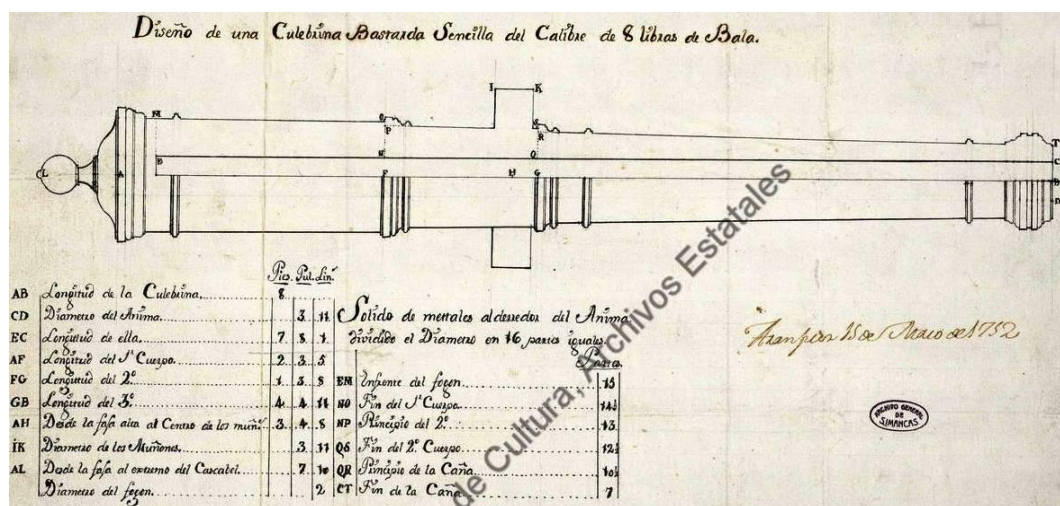 Diseño de una Culebrina Bastarda Sencilla del Calibre de 8 libras de Bala.
I K
M O P S R T
L A B N Q C
F H G D
B
Pies. Pul. Lin.
AB Longitud de la Culebrina 8
CD Diametro del Anima 3 11
EC Longitud de ella 7 8 1
AF Longitud del 1º Cuerpo 2 3 5
FG Longitud del 2º 1 3 8
GB Longitud del 3º 4 4 11
AH Desde la faja alta al Centro de los muñ.s 3 4 8
IK Diametro de los Muñones 3 11
AL Desde la faja al extremo del Cascabel 7 10
Diametro del fogon 2
Solido de mettales al derredor del Anima
dividido el Diametro en 16 partes iguales
Partes.
EM Enfrente del fogon 15
NO Fin del 1º Cuerpo 14½
NP Principio del 2º 13
QS Fin del 2º Cuerpo 12½
QR Principio de la Caña 10½
CT Fin de la Caña 7
Aranjuez 15 de Maio de 1752
ARCHIVO GENERAL
DE
SIMANCAS
de Cultura, Archivos Estatales